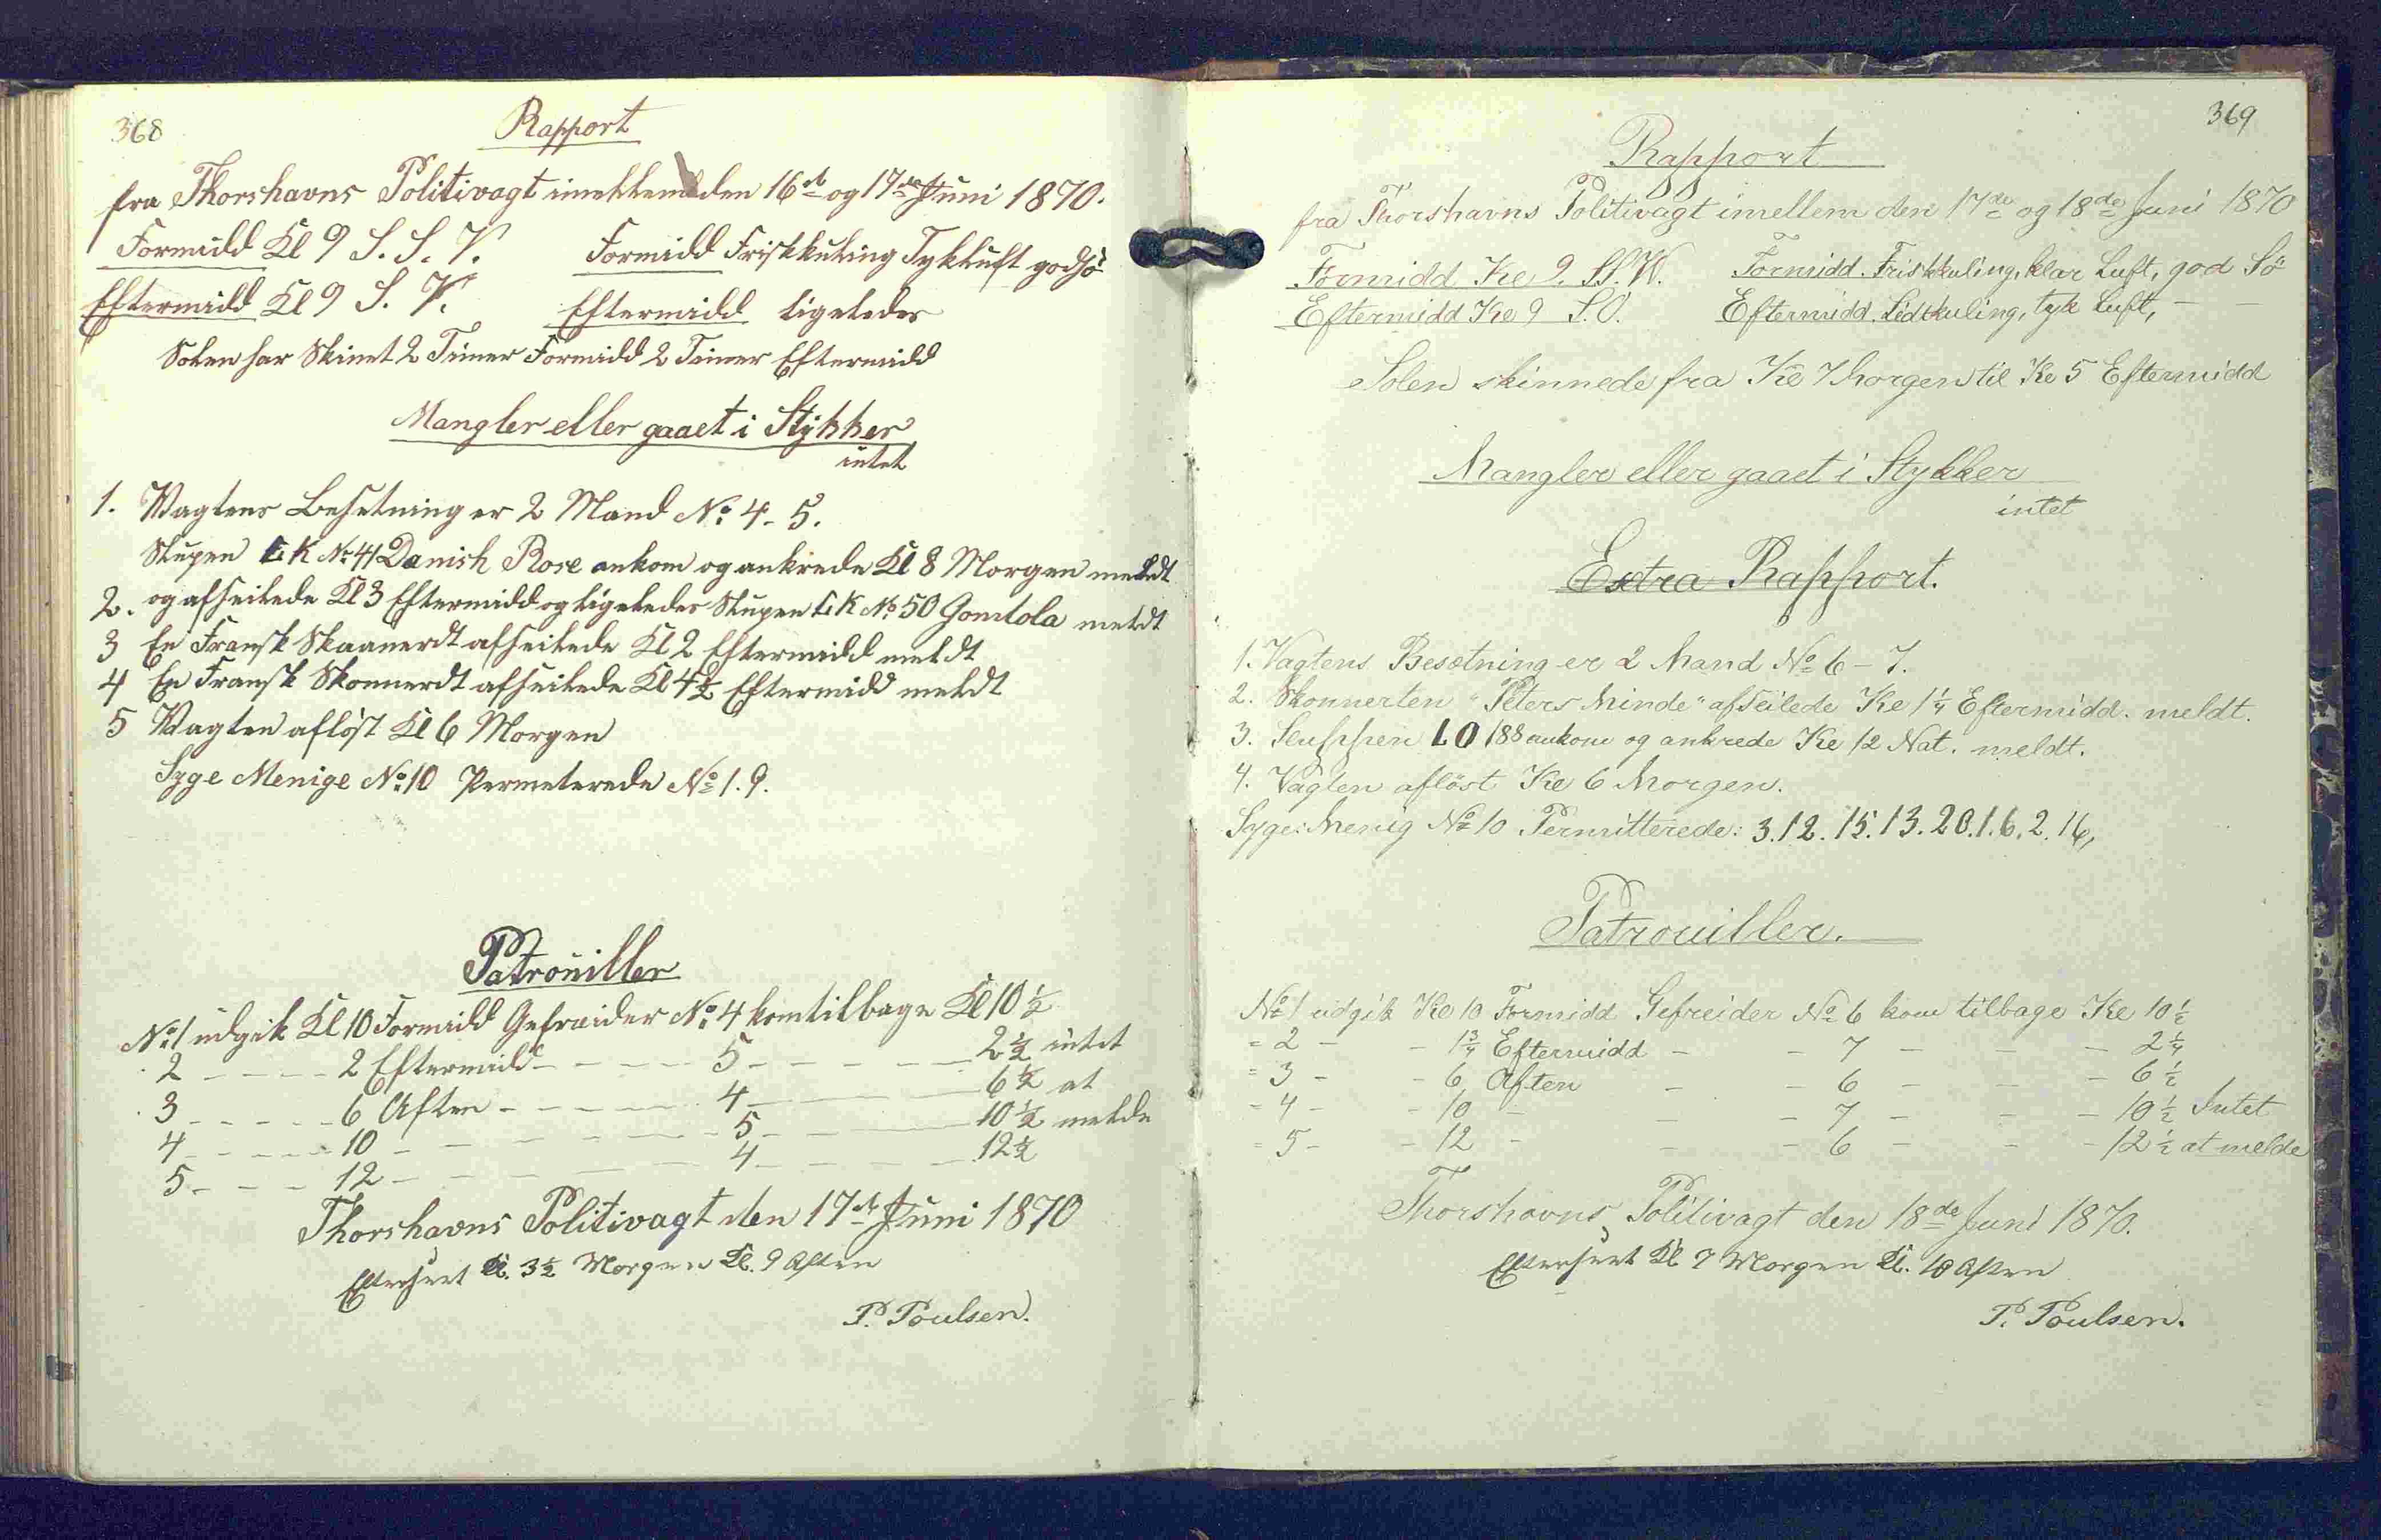 368
Rapport
fra Thorshavns Politivagt imellem den 16de og 17de Juni 1870.
Formidd Kl 9 S. S. V. Formidd Friskkuling Tykluft god Sö
Eftermidd Kl 9 S. V. Eftermidd ligeledes
Solen har Skinet 2 Timer Formidd 2 Timer Eftermidd
Mangler eller gaaet i Stykker
intet
1. Vagtens Besetning er 2 Mand No 4 - 5.
Slupen LK No 41 Danish Rose ankom og ankrede Kl 8 Morgen meldt
2. og afseilede Kl 3 Eftermidd og ligeledes Slupen LK No 50 Gontola meldt
3 En Fransk Skaanerdt afseilede Kl 2 Eftermidd meldt
4 En Fransk Skonnerdt afseilede Kl 4½ Eftermidd meldt
5 Vagten aflöst Kl 6 Morgen
Syge Menige No 10 Permeterede No 1. 9.
Patrouiller
No 1 udgik Kl 10 Formidd Gefreider No 4 kom tilbage Kl 10½
2 - - - - 2 Eftermidd - - - - 5 - - - - 2½ intet
3 - - - - 6 Aften - - - - 4 - - - - 6½ at
4 - - - - 10 - - - - 5 - - - - 10½ melde
5 - - - 12 - - - - 4 - - - - 12½
Thorshavns Politivagt den 17de Juni 1870
Efterseet Kl. 3½ Morgen Kl. 9 Aften
P. Poulsen.
369
Rapport
fra Thorshavns Politivagt imellem den 17de og 18de Juni 1870
Formidd Kl 9. SS.W. Formidd. Friskkuling, klar Luft, god Sö
Eftermidd Kl 9 S.O. Eftermidd. Lidtkuling, tyk Luft, - -
Solen skinnede fra Kl 7 Morgen til Kl 5 Eftermidd
Mangler eller gaaet i Stykker
intet
Extra Rapport.
1. Vagtens Besætning er 2 Mand No 6 - 7.
2. Skonnerten "Peters Minde" afseilede Kl 1¼ Eftermidd. meldt.
3. Sluppen LO 188 ankom og ankrede Kl 12 Nat. meldt.
4. Vagten aflöst Kl 6 Morgen.
Syge: Menig No 10 Permitterede: 3. 12. 15. 13. 20. 1. 6. 2. 16,
Patrouiller.
No 1 udgik Kl 10 Formidd Gefreider No 6 kom tilbage Kl 10½
= 2 - - 1¾ Eftermidd - - 7 - - - 2¼
= 3 - - 6, Aften - - 6 - - - 6½
= 4 - - 10 - - - 7 - - - 10½ Intet
= 5 - - 12 - - - 6 - - - 12½ at melde
Thorshavns Politivagt den 18de Juni 1870.
Efterseet Kl 7 Morgen Kl. 10 Aften
P. Poulsen.